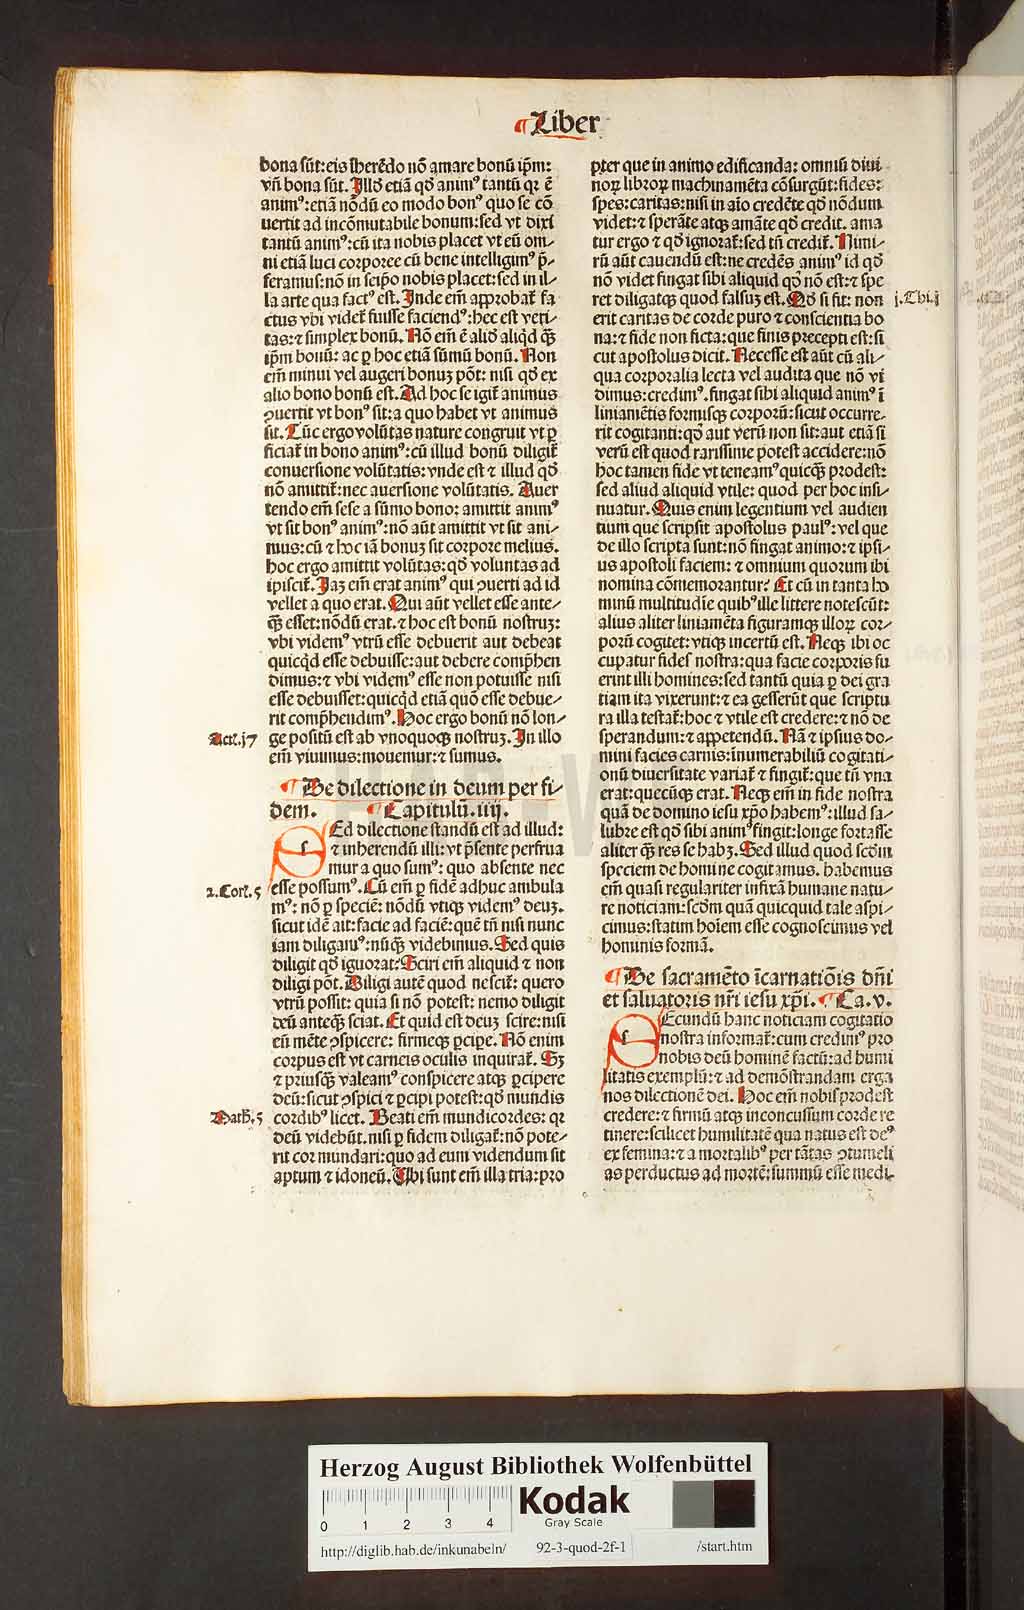 ¶Liber
bona sūt: eis īherēdo nō amare bonū ip̄m:
vn̄ bona sūt. Illd̄ etiā qd̄ animꝰ tantū qꝛ ē
animꝰ: etiā nōdū eo modo bonꝰ quo se cō
uertit ad incōmutabile bonum: sed vt dixi
tantū animꝰ: cū ita nobis placet vt eū om⸗
ni etiā luci corporee cū bene intelligimꝰ p̄⸗
feramus: nō in seip̄o nobis placet: sed in il⸗
la arte qua factꝰ est. Inde em̄ approbat̄ fa
ctus vbi videt̄ fuisse faciendꝰ: hec est veri⸗
tas: ⁊ simplex bonū. Nō em̄ ē aliđ aliqd̄ qꝫ̄
ip̄m bonū: ac ꝑ hoc etiā sūmū bonū. Non
em̄ minui vel augeri bonuꝫ pōt: nisi qd̄ ex
alio bono bonū est. Ad hoc se igit̄ animus
ꝯuertit vt bonꝰ sit: a quo habet vt animus
sit. Tūc ergo volūtas nature congruit vt ꝑ
ficiat̄ in bono animꝰ: cū illud bonū diligit̄
conuersione volūtatis: vnde est ⁊ illud qd̄
nō amittit̄: nec auersione volūtatis. Auer
tendo em̄ sese a sūmo bono: amittit animꝰ
vt sit bonꝰ animꝰ: nō aūt amittit vt sit ani⸗
mus: cū ⁊ hoc iā bonuꝫ sit corpore melius.
hoc ergo amittit volūtas: qd̄ voluntas ad
ipiscit̄. Jaꝫ em̄ erat animꝰ qui ꝯuerti ad id
vellet a quo erat. Qui aūt vellet esse ante⸗
qꝫ̄ esset: nōdū erat. ⁊ hoc est bonū nostruꝫ:
vbi videmꝰ vtrū esse debuerit aut debeat
quicqd̄ esse debuisse: aut debere comp̄hen
dimus: ⁊ vbi videmꝰ esse non potuisse nisi
esse debuisset: quicqd̄ etiā quō esse debue⸗
rit comp̄hendimꝰ. Hoc ergo bonū nō lon⸗
Act̄. j7
ge positū est ab vnoquoqꝫ nostruꝫ. In illo
em̄ viuimus: mouemur: ⁊ sumus.
¶ De dilectione in deum per fi⸗
dem. ¶ Capitulū. iiij.
SEd dilectione standū est ad illud:
⁊ inherendū illi: vt p̄sente perfrua
mur a quo sumꝰ: quo absente nec
2. Cor̄. 5
esse possumꝰ. Cū em̄ ꝑ fidē adhuc ambula
mꝰ: nō ꝑ speciē: nōdū vtiqꝫ videmꝰ deuꝫ.
sicut idē ait: facie ad faciē: quē tn̄ nisi nunc
iam diligamꝰ: nūqꝫ̄ videbimus. Sed quis
diligit qd̄ ignorat: Sciri em̄ aliquid ⁊ non
diligi pōt. Diligi autē quod nescit̄: quero
vtrū possit: quia si nō potest: nemo diligit
deū anteqꝫ̄ sciat. Et quid est deuꝫ scire: nisi
eū mēte ꝯspicere: firmeqꝫ ꝑcipe. Nō enim
corpus est vt carneis oculis inquirat̄. Sꝫ
⁊ priusqꝫ̄ valeamꝰ conspicere atqꝫ ꝑcipere
deū: sicut ꝯspici ⁊ ꝑcipi potest: qd̄ mundis
Math̄. 5
cordibꝰ licet. Beati em̄ mundicordes: qꝛ
deū videbūt. nisi ꝑ fidem diligat̄: nō pote⸗
rit cor mundari: quo ad eum videndum sit
aptum ⁊ idoneū. Vbi sunt em̄ illa tria: pro
pter que in animo edificanda: omniū diui
noꝝ libroꝝ machinamēta cōsurgūt: fides:
spes: caritas: nisi in aīo credēte qd̄ nōdum
videt: ⁊ sperāte atqꝫ amāte qd̄ credit. ama
tur ergo ⁊ qd̄ ignorat̄: sed tn̄ credit̄. Nimi⸗
rū aūt cauendū est: ne credēs animꝰ id qd̄
nō videt fingat sibi aliquid qd̄ nō est: ⁊ spe
ret diligatqꝫ quod falsuꝫ est. Qd̄ si fit: non
j. Thi. j
erit caritas de corde puro ⁊ conscientia bo
na: ⁊ fide non ficta: que finis precepti est: si
cut apostolus dicit. Necesse est aūt cū ali⸗
qua corporalia lecta vel audita que nō vi
dimus: credimꝰ. fingat sibi aliquid animꝰ ī
liniamētis formisqꝫ corporū: sicut occurre⸗
rit cogitanti: qd̄ aut verū non sit: aut etiā si
verū est quod rarissime potest accidere: nō
hoc tamen fide vt teneamꝰ quicqꝫ̄ prodest:
sed aliud aliquid vtile: quod per hoc insi⸗
nuatur. Quis enim legentium vel audien
tium que scripsit apostolus paulꝰ: vel que
de illo scripta sunt: nō fingat animo: ⁊ ipsi⸗
us apostoli faciem: ⁊ omnium quorum ibi
nomina cōmemorantur: Et cū in tanta ho
minū multitudīe quibꝰ ille littere notescūt:
alius aliter liniamēta figuramqꝫ illoꝝ cor⸗
porū cogitet: vtiqꝫ incertū est. Neqꝫ ibi oc
cupatur fides nostra: qua facie corporis fu
erint illi homines: sed tantū quia ꝑ dei gra
tiam ita vixerunt: ⁊ ea gesserūt que scriptu
ra illa testat̄: hoc ⁊ vtile est credere: ⁊ nō de
sperandum: ⁊ appetendū. Nā ⁊ ipsius do⸗
mini facies carnis: īnumerabiliū cogitati⸗
onū diuersitate variat̄ ⁊ fingit̄: que tn̄ vna
erat: quecūqꝫ erat. Neqꝫ em̄ in fide nostra
quā de domino iesu xp̄o habemꝰ: illud sa⸗
lubre est qd̄ sibi animꝰ fingit: longe fortasse
aliter qꝫ̄ res se habꝫ. Sed illud quod scd̄m
speciem de homine cogitamus. habemus
em̄ quasi regulariter infixā humane natu⸗
re noticiam: scd̄m quā quicquid tale aspi⸗
cimus: statim hoīem esse cognoscimus vel
hominis formā.
¶ De sacramēto īcarnatiōis dn̄i
et saluatoris nr̄i iesu xp̄i. ¶ Ca. v.
SEcundū hanc noticiam cogitatio
nostra informat̄: cum credimꝰ pro
nobis deū hominē factū: ad humi
litatis exemplū: ⁊ ad demōstrandam erga
nos dilectionē dei. Hoc em̄ nobis prodest
credere: ⁊ firmū atqꝫ inconcussum corde re
tinere: scilicet humilitatē qua natus est deꝰ
ex femina: ⁊ a mortalibꝰ per tātas ꝯtumeli
as perductus ad mortē: summū esse medi⸗
Herzog August Bibliothek Wolfenbüttel
0 1 2 3 4
Kodak
Gray Scale
http://diglib.hab.de/inkunabeln/ 92-3-quod-2f-1 /start.htm